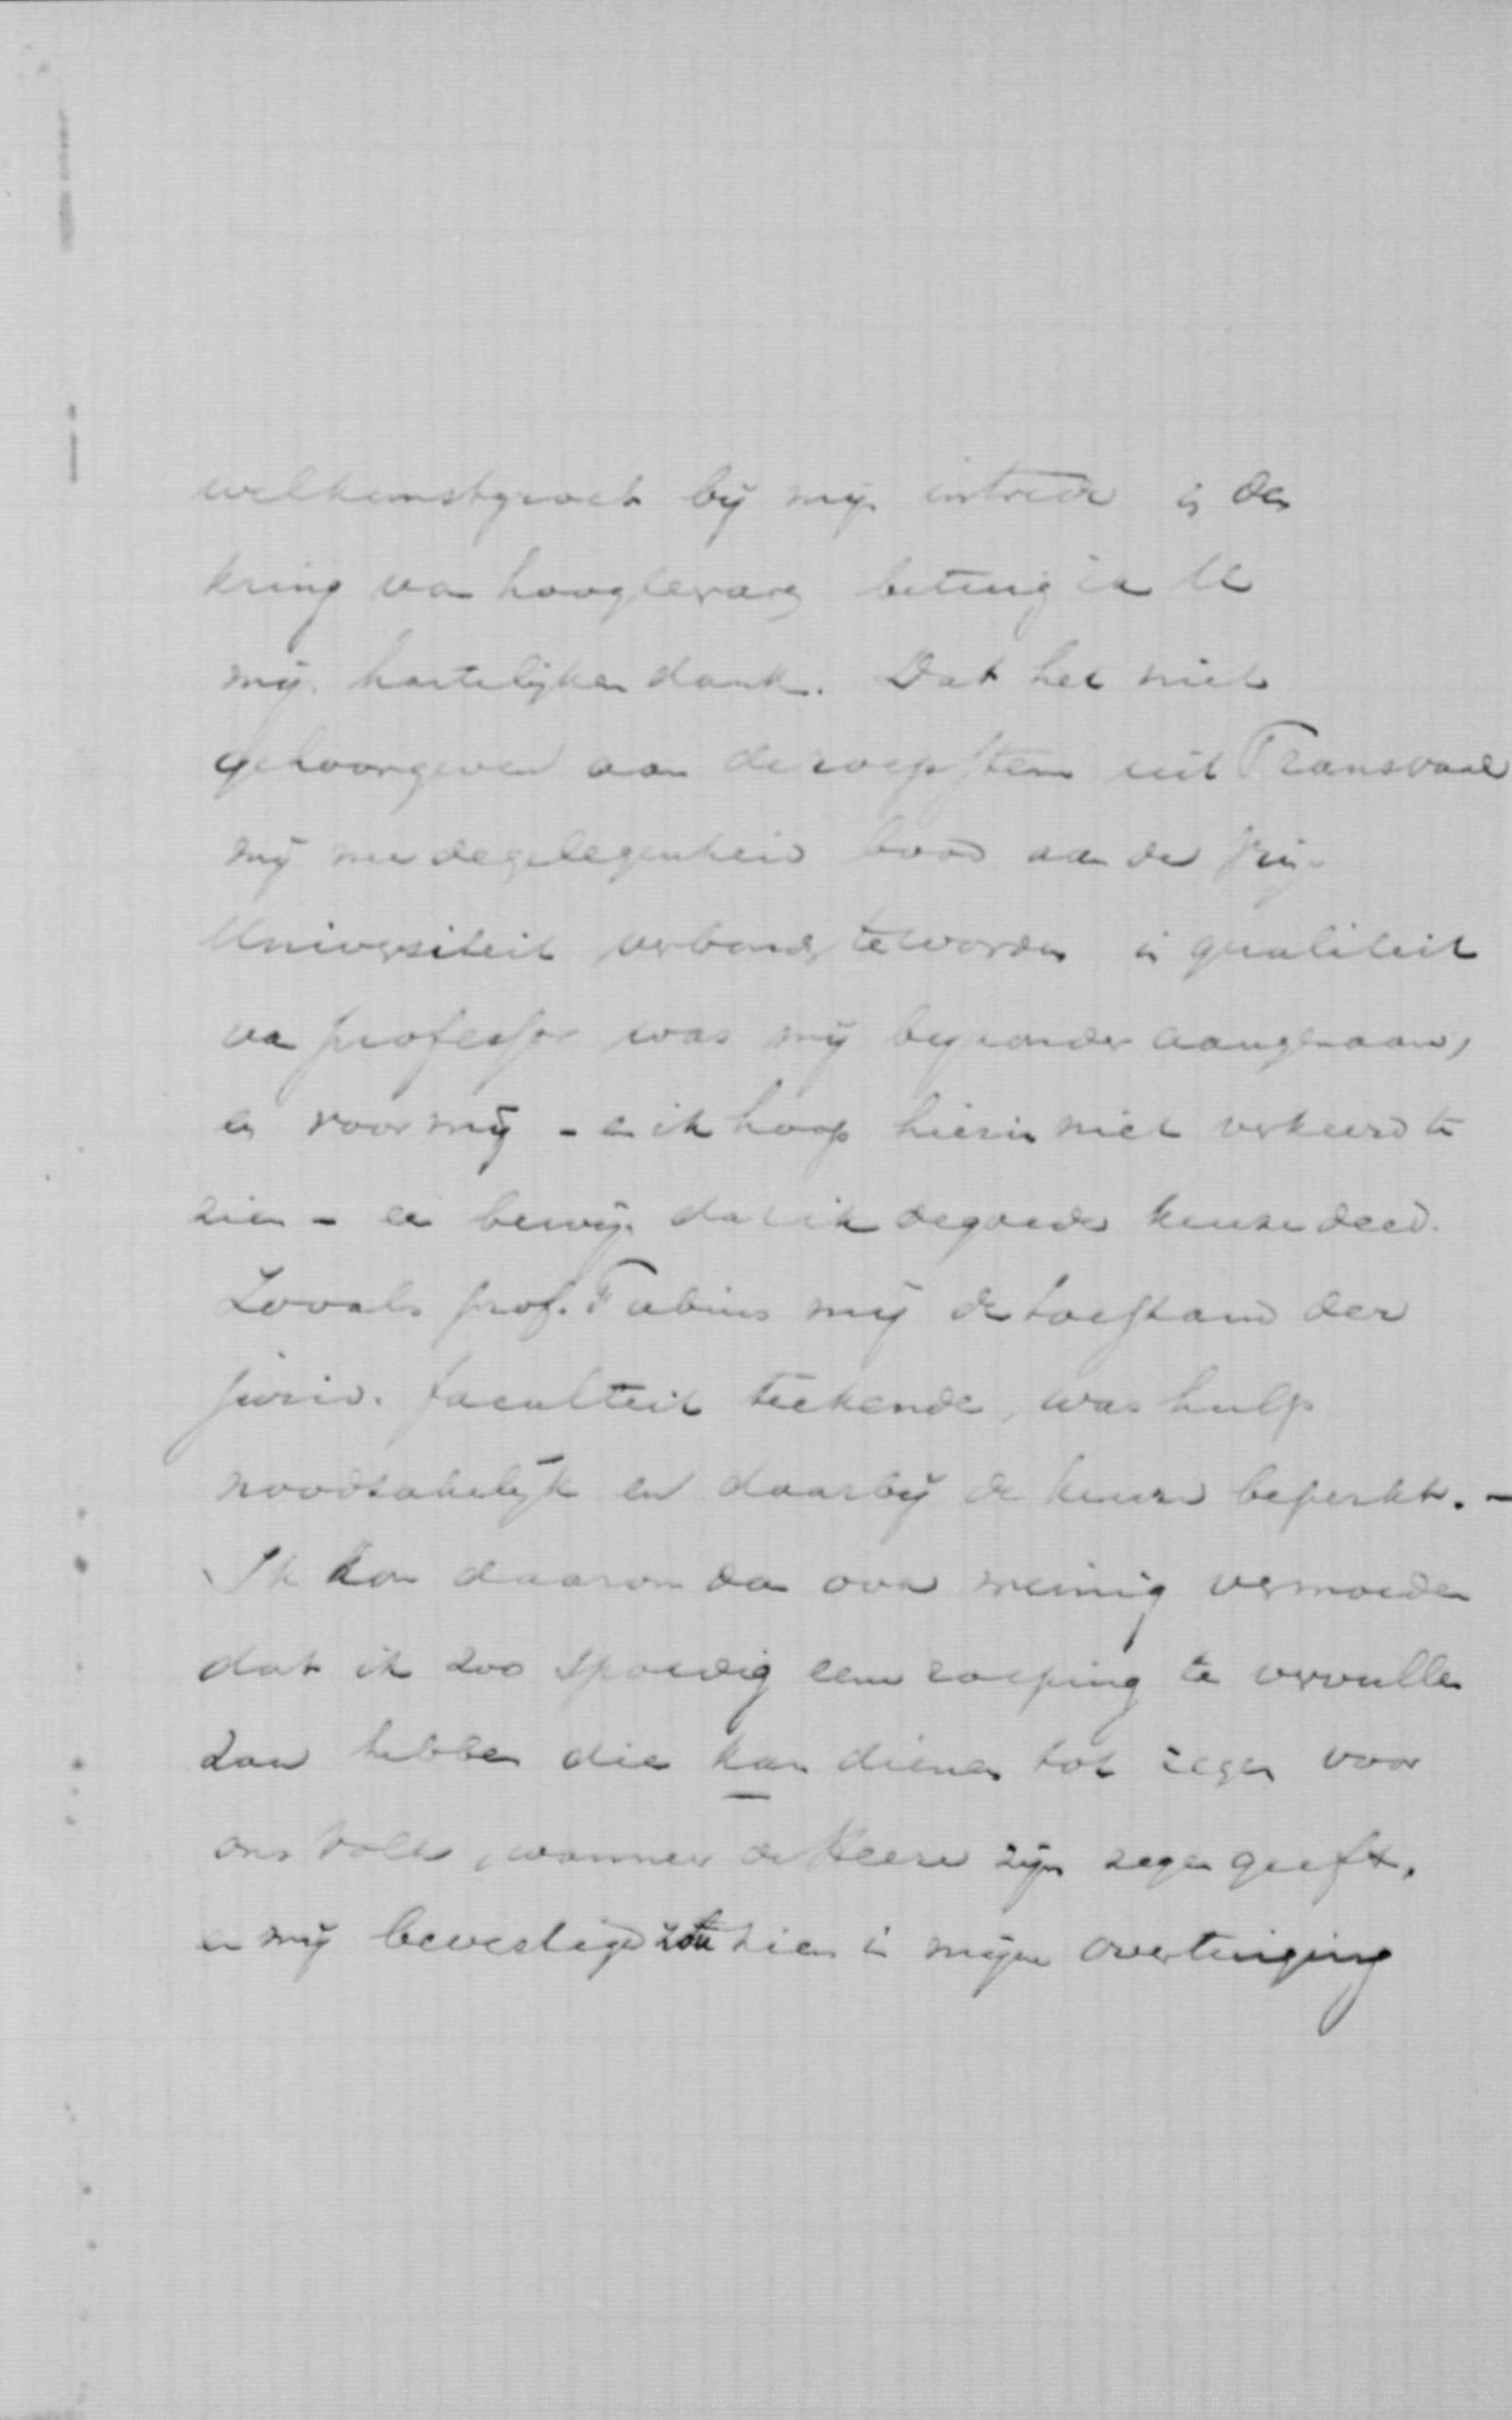 welkomstgroet bij mijn intrede in den
kring van hoogleraren betuig ik U
mijn hartelijken dank. Dat het niet
gehoorgeven aan de roepstem uit Transvaal
mij nu de gelegenheid bood aan de Vrije
Universiteit verbonden te worden in qualiteit
van professor was mij bijzonder aangenaam,
en voor mij - en ik hoop hierin niet verkeerd te
zien - een bewijs dat ik de goede keuze deed.
Zooals prof. Fabius mij de toestand der
jurid. faculteit teekende, was hulp
noodzakelijk en daarbij de keuze beperkt. -
Ik kon daarom dan ook weinig vermoeden
dat ik zoo spoedig een roeping te vervullen
zou hebben die kan dienen tot zegen voor
ons volk, wanneer de Heere zijn zegen geeft,
en mij bevestigd zou zien in mijne overtuiging